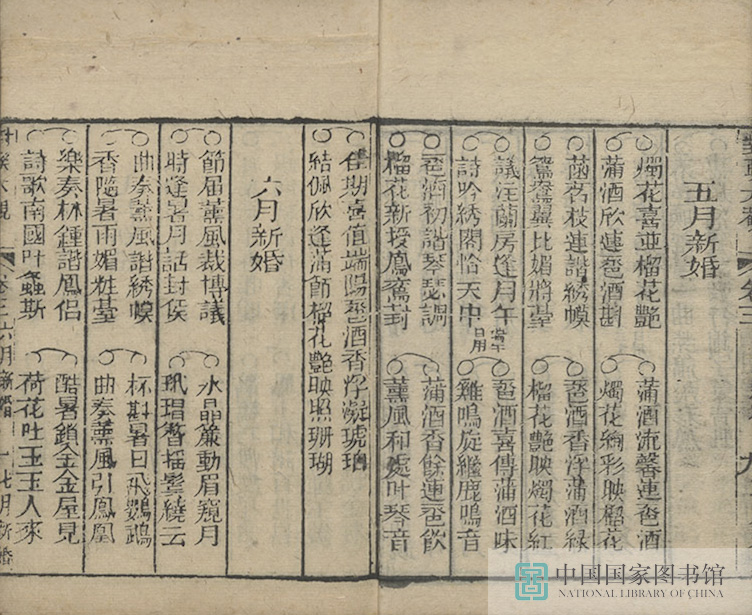 五月新婚
燭花喜並榴花艷 蒲酒流馨連卺酒
蒲酒欣連卺酒斟 燭花絢彩映榴花
菡茗枝連諧綉幙 卺酒香浮蒲酒綠
鴛鴦翼比媚粧臺 榴花艷映燭花紅
議注蘭房逢月午 卺酒喜傳蒲酒味
詩吟綉閣恰天中 雞鳴旋繼鹿鳴音
卺酒初諧琴瑟調 蒲酒香餘連卺飲
榴花新授鳳鸞封 薰風和處叶琴音
佳期喜值端陽卺酒香浮凝琥珀
結佩欣逢蒲節榴花艷映照珊瑚
六月新婚
節届薰風裁博議 水晶簾動眉窺月
時逢暑月話封侯 玳瑁簪搖鬢繞云
曲奏薰風諧綉幙 杯斟暑日飛鸚鵡
香隨暑雨媚粧臺 曲奏薰風引鳳凰
樂奏林鍾諧鳳侶 酷暑鎖金金屋見
詩歌南國叶螽斯 荷花吐玉玉人來
卷三 六月新婚 七月新婚
中国国家图书馆
NATIONAL LIBRARY OF CHINA